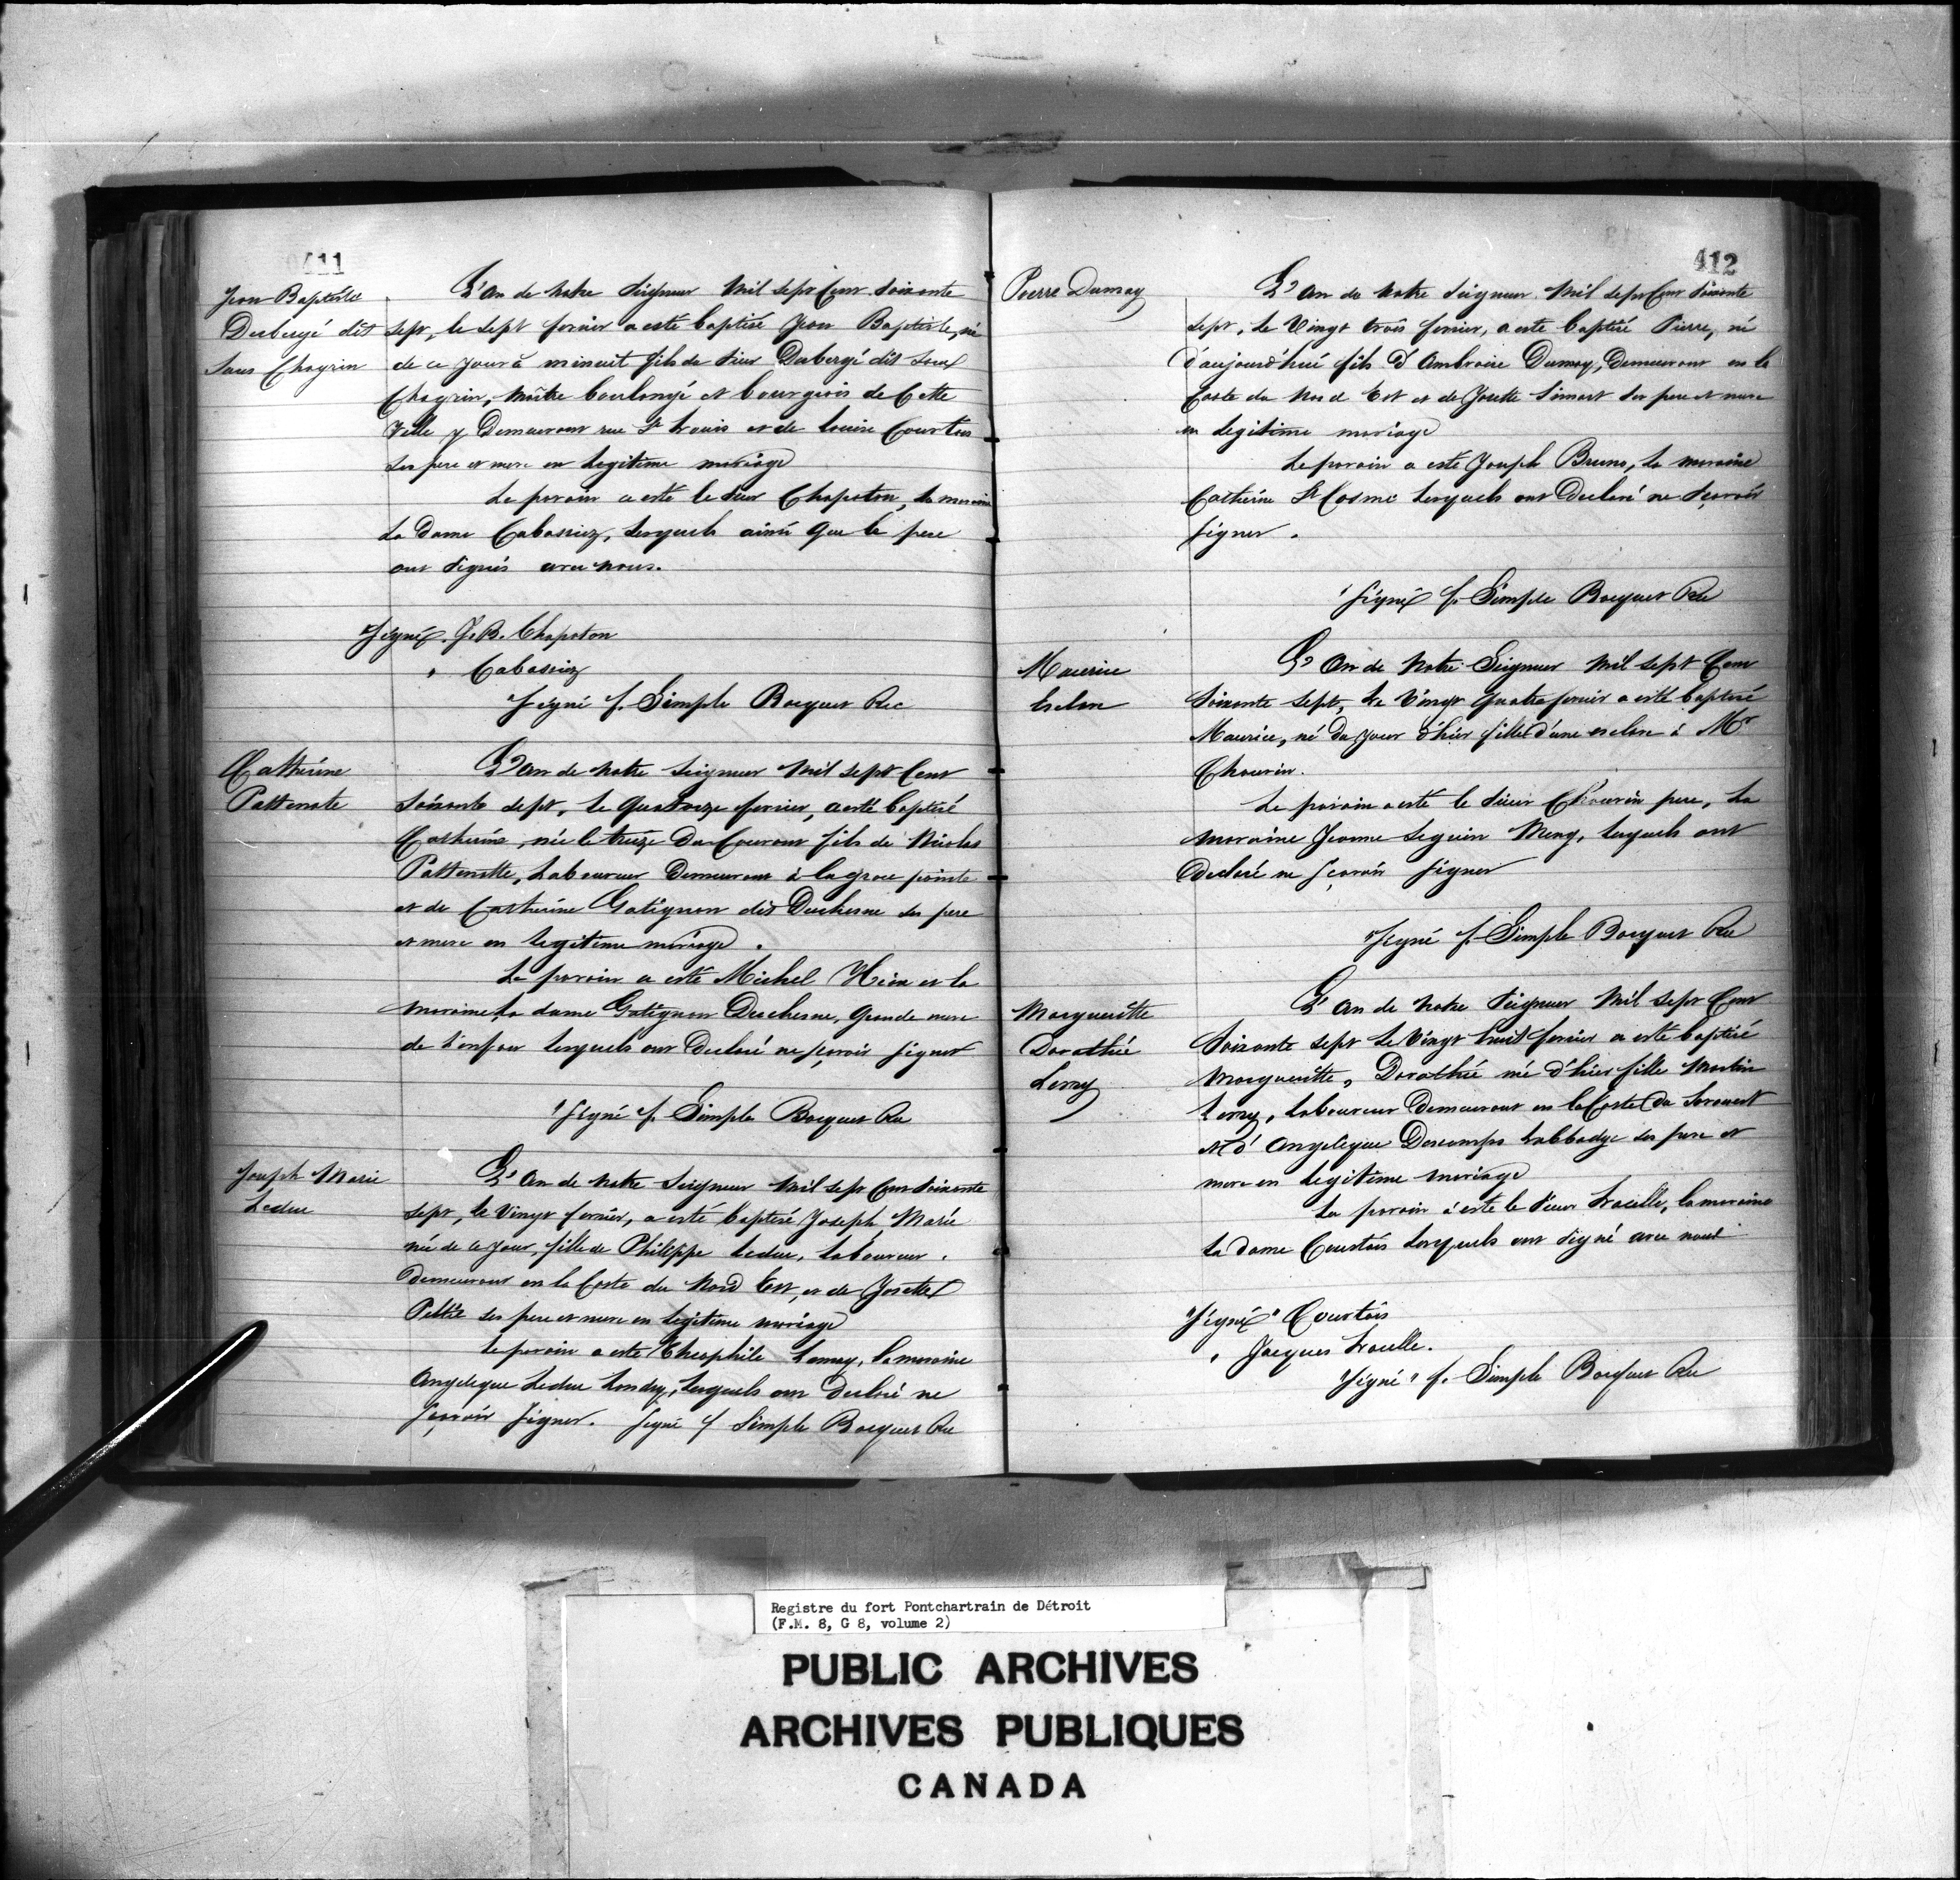 411
Jean Baptiste
Dubergé dit
Sans Chagrin
L'an de notre Seigneur mil sept Cent soixante
sept, le sept fevrier a esté baptisé Jean Baptiste, né
de ce jour à minuit fils de Sieur Dubergé dit Sans
Chagrin, maître boulangé et bourgeois de Cette
Ville y Demeurant rue St Louis et de Louise Courtois
ses pere et mere en legitime mariage
Le parain a esté le Sieur Chapoton, la maraine
La Dame Cabassiez, lesquels ainsi que le pere
ont signés avec nous.
"Signé". J. B. Chapoton
" Cabassiez
"Signé f. Simple Bocquet Rec
Catherine
Pattenote
L'an de notre Seigneur mil sept Cent
soixante sept, le quatorze fevrier, a esté baptisé
Catherine, née le treize du Courant fils de Nicolas
Pattenotte, Laboureur Demeurant à la grose pointe
et de Catherine Gatignon dit Duchesne ses pere
et mere en legitime mariage.
Le parain a esté Michel et la
maraine la dame Gatignon Duchesne, Grande mere
de l'enfant lesquels ont Declaré ne sçavoir signer
"Signé f. Simple Bocquet Rec
Joseph Marie
Leduc
L'an de notre Seigneur mil sept Cent soixante
sept, le Vingt fevrier, a esté baptisé Joseph Marie
né de ce jour, fille de Philippe Leduc, Laboureur.
Demeurant en la Coste du Nord Est, et de Josette
Peltié ses pere et mere en legitime mariage
Le parain a esté Theophile Lemay, la maraine
Angelique Leduc Landry, lesquels ont Declaré ne
sçavoir signer. Signé f Simple Bocquet Rec
412
Pierre Dumay
L'an de notre Seigneur mil sept Cent soixante
sept, le Vingt trois fevrier, a esté baptisé Pierre, né
d'aujourd'hui fils d'Ambroise Dumay, Demeurant en la
Coste du Nord Est et de Josette Simart ses pere et mere
en legitime mariage
Le parain a esté Joseph Bruno, la maraine
Catherine St Cosme lesquels ont Declaré ne sçavoir
signer.
"Signé f. Simple Bocquet Rec
Maurice
Esclave
L'an de Notre Seigneur mil sept Cent
soixante sept, le Vingt quatre fevrier a esté baptisé
Maurice, né du jour d'hier fille d'une esclave à Mr
Chauvin.
Le parain a esté le Sieur Chauvin pere, la
maraine Jeanne Seguin Meny, lesquels ont
Declaré ne sçavoir signer
"Signé f. Simple Bocquet Rec
Margueritte
Dorathée
Levry
L'an de notre Seigneur mil sept Cent
Soixante sept le Vingt huit fevrier a esté baptisé
Margueritte, Dorathée né d'hier fille Martin
Levry, Laboureur Demeurant en la Coste du Sorouest
et d'Angelique Descomps Labbadye ses pere et
mere en legitime mariage
Le parain a esté le Sieur Lraselle, la maraine
La Dame Courtois lesquels ont signé avec nous
"Signé" Courtois
" Jacques Lraselle.
"Signé" f. Simple Bocquet Rec
Registre du fort Pontchartrain de Détroit
(F.M. 8, G 8, volume 2)
PUBLIC ARCHIVES
ARCHIVES PUBLIQUES
CANADA